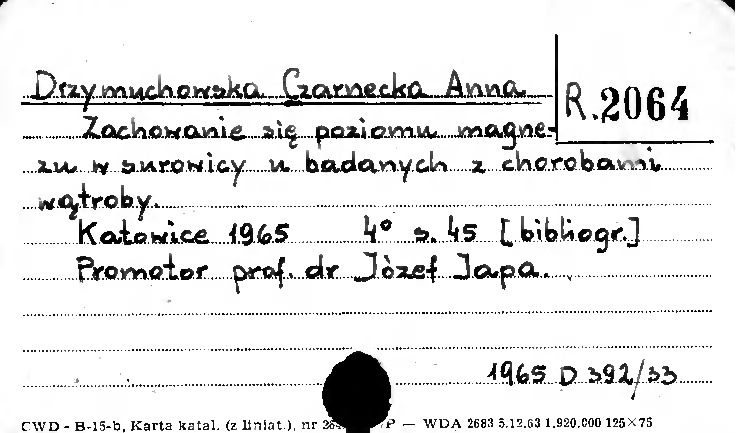 Drzymuchowska Czarnecka Anna
R.2064
Zachowanie się poziomu magne-
zu w surowicy u badanych z chorobami
wątroby.
Katowice 1965 4° s. 45 [bibliogr.]
Promotor prof. dr Józef Japa.
1965 D 392/33
CWD - B-15-b, Karta katal. (z liniat.), nr — WDA 2683 5.12.63 1.920.000 125×75